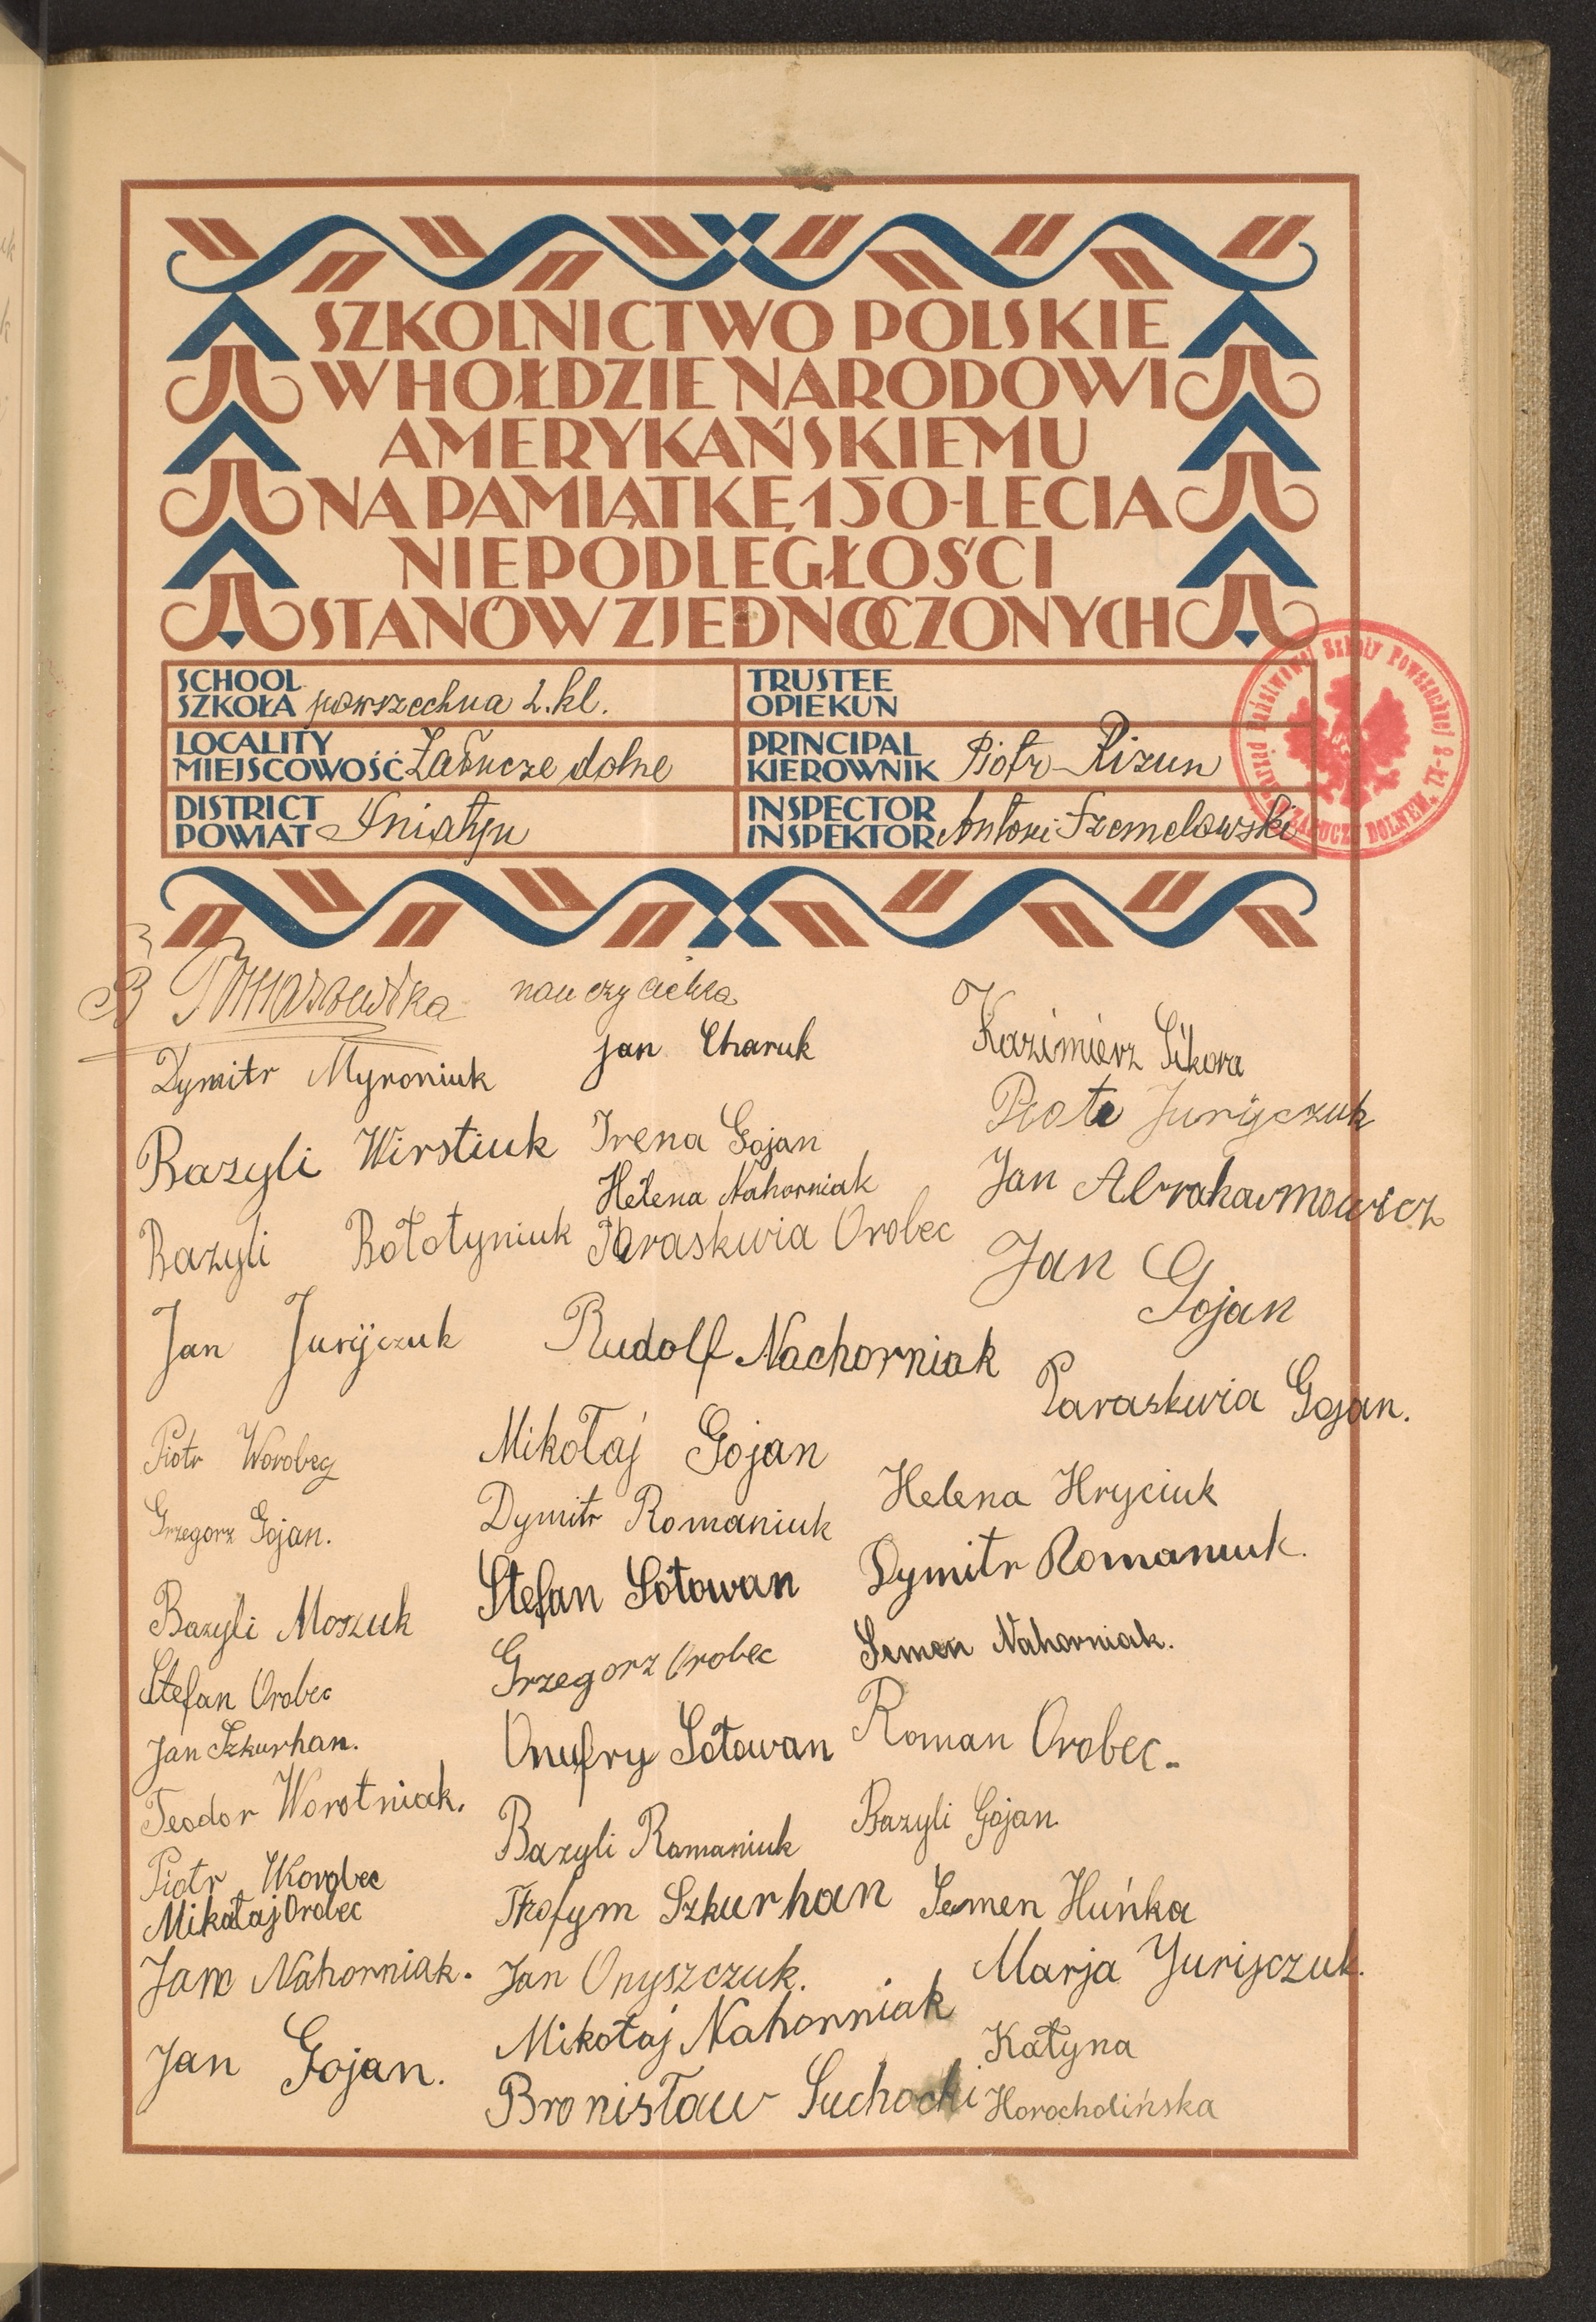 SZKOLNICTWO POLSKIE
W HOŁDZIE NARODOWI
AMERYKAŃSKIEMU
NA PAMIĄTKĘ 150-LECIA
NIEPODLEGŁOŚCI
STANÓW ZJEDNOCZONYCH
SCHOOL
SZKOŁA powszechna 2. kl.
LOCALITY
MIEJSCOWOŚĆ Załucze dolne
DISTRICT
POWIAT Śniatyn
TRUSTEE
OPIEKUN
PRINCIPAL
KIEROWNIK Piotr Rizun
INSPECTOR
INSPEKTOR Antoni Szemelowski
Państwowej Szkoły Powszechnej 2-kl.
ZAŁUCZU DOLNEM
B Tomaszewska nauczycielka
Dymitr Myroniuk
Bazyli Wirstiuk
Bazyli Bołotyniuk
Jan Jurijczuk
Piotr Worobeg
Grzegorz Gojan.
Bazyli Moszuk
Stefan Orobec
Jan Szkurhan.
Teodor Worotniak.
Piotr Worobec
Mikołaj Orobec
Jan Nahorniak.
Jan Gojan.
Jan Charuk
Irena Gojan
Helena Nahorniak
Paraskwia Orobec
Rudolf Nachorniak
Mikołaj Gojan
Dymitr Romaniuk
Stefan Sołowan
Grzegorz Orobec
Onufry Sołowan
Bazyli Romaniuk
Trofym Szkurhan
Jan Onyszczuk.
Mikołaj Nahorniak
Bronisław Suchocki
Kazimierz Sikora
Piotr Jurijczuk
Jan Abrahamowicz
Jan
Gojan
Paraskwia Gojan.
Helena Hryciuk
Dymitr Romaniuk.
Semen Nahorniak.
Roman Orobec.
Bazyli Gojan
Semen Huńka
Marja Jurijczuk.
Katyna
Horocholińska